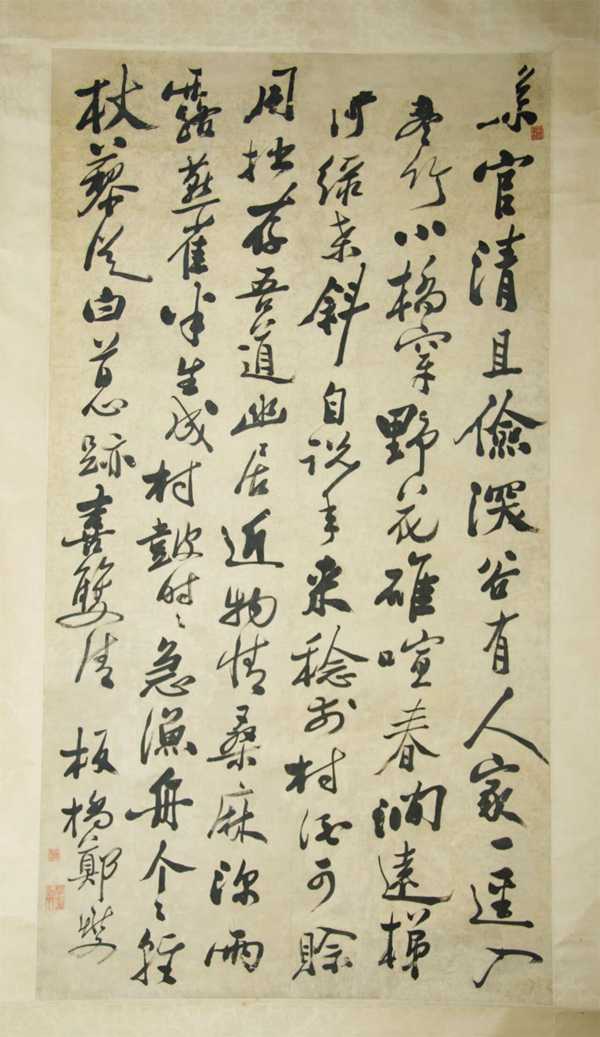 官清且儉深谷有人家一逕入
叢竹小橋穿野花碓喧春澗遠梯
倚綠桒斜自説年來稔前村酒可賒
用拙存吾道幽居近物情桑麻深雨
露燕雀半生成村鼓時〻急漁舟个〻輕
杖藜從白首心跡喜雙清 板橋鄭燮